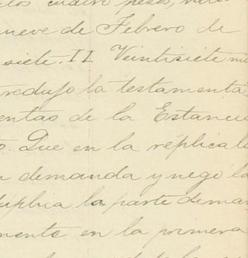 los cuatro pesos, vein
nueve de Febrero de
siete. II Veintisiete mi
redujo la testamenta
entas de la Estanci
Que en la réplica
demanda y negó la
dúplica la parte deman
mente en la primera